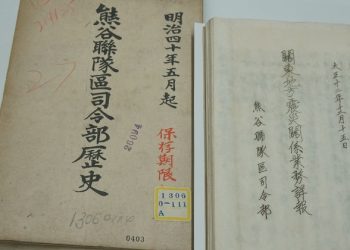 明治四十年五月起
熊谷聯隊區司令部歷史
保存期限
26094
1306
0-111
A
0403
大正十二年十二月十五日
關東地方震災關係業務詳報
熊谷聯隊區司令部